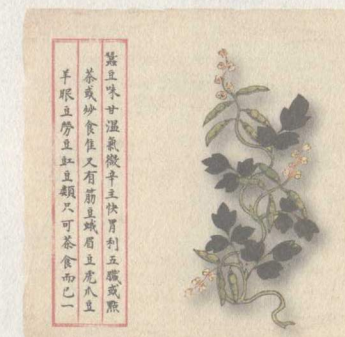 蠶豆味甘溫氣微辛主快胃利五臟或點
茶或炒食佳又有筋豆蛾眉豆虎爪豆
羊眼豆勞豆紅豆類只可茶食而已一